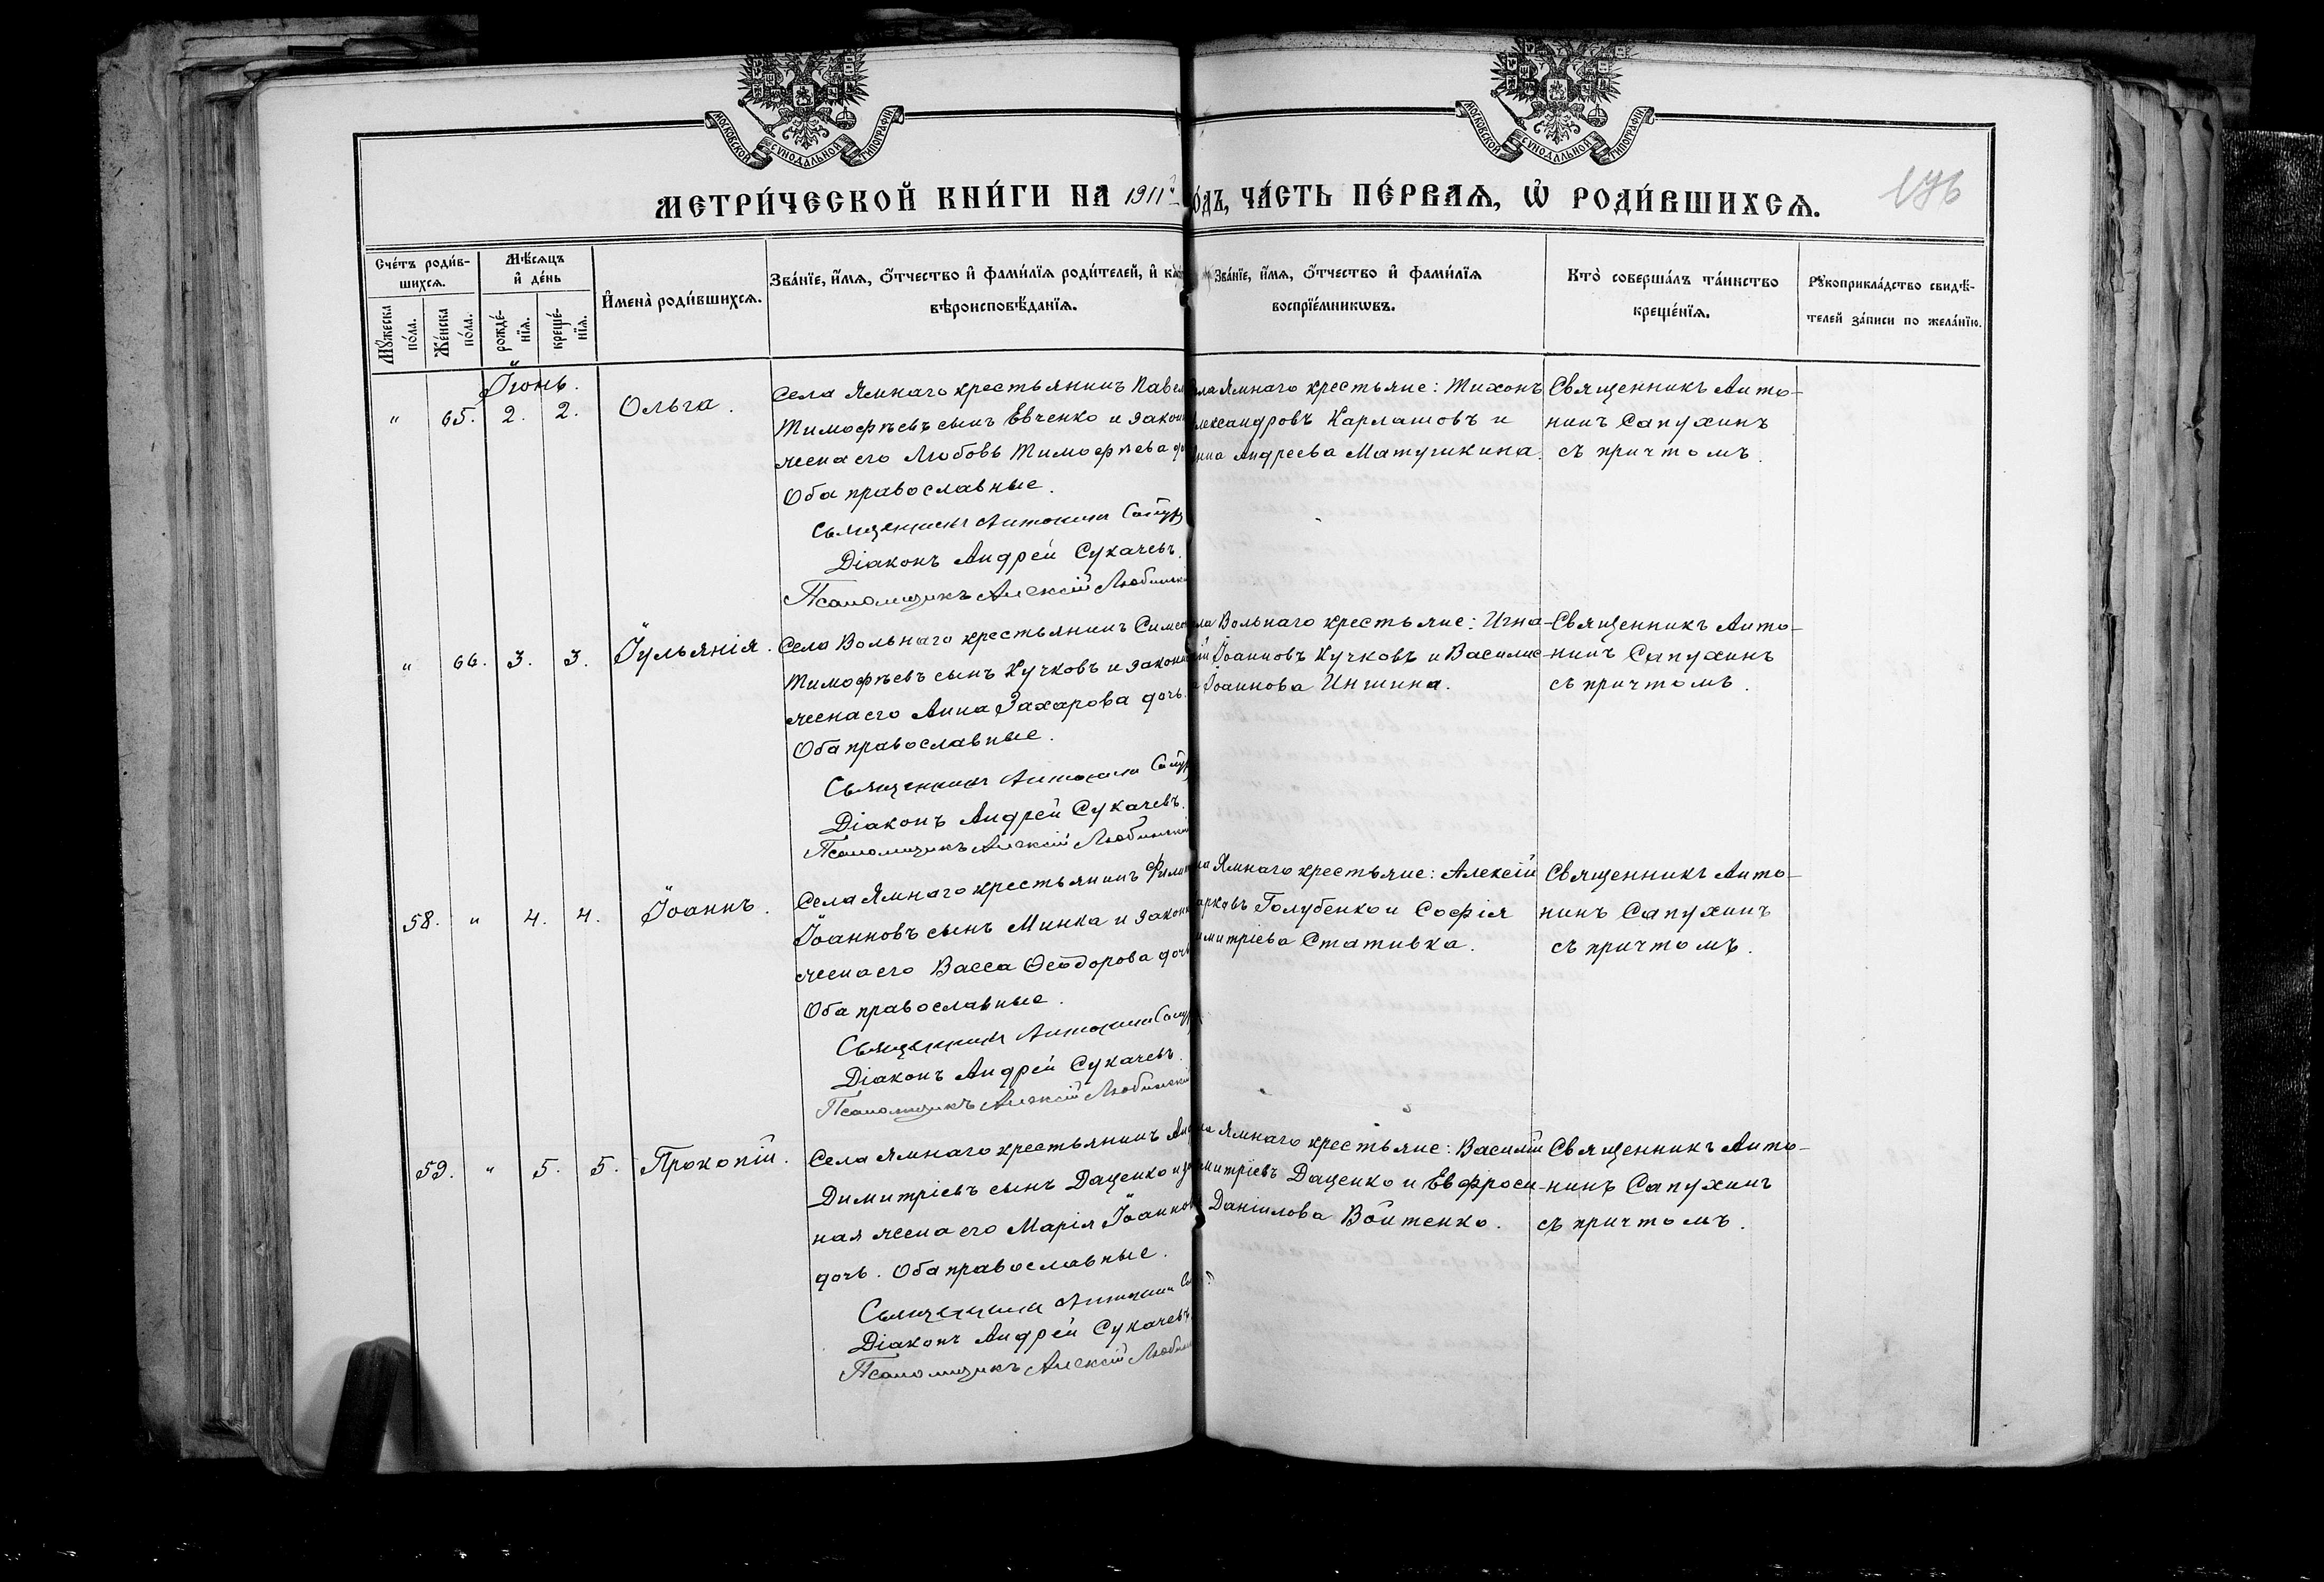 МОСКОВСКОЙ СѴНОДАЛЬНОЙ ТИПОГРАФІИ
МОСКОВСКОЙ СѴНОДАЛЬНОЙ ТИПОГРАФІИ
МЕТРИ́ЧЕСКОЙ КНИ́ГИ НА 1911й о́дъ, ЧА́СТЬ ПЕ́РВАѦ, Ѡ҆ РОДИ́ВШИХСѦ.
176
Сче́тъ роди́в-
шихсѧ.
Мѣ́сѧцъ
и҆ де́нь
Мꙋ́жеска по́ла.
Же́нска по́ла.
рожде́-
нїѧ.
креще́-
нїѧ.
И҆мена̀ роди́вшихсѧ.
Зва́нїе, и҆́мѧ, ѻ҆́тчество и҆ фами́лїѧ роди́телей, и҆
вѣроисповѣ́данїѧ.
Зва́нїе, и҆́мѧ, ѻ҆́тчество и҆ фами́лїѧ
воспрїе́мникѡвъ.
Кто̀ соверша́лъ та́инство
креще́нїѧ.
Рꙋкоприкла́дство свидѣ́-
телей за́писи по жела́нїю.
Іюнь.
" 65. 2. 2. Ольга.
Села Ямнаго крестьянинъ Павел
Тимоѳѣевъ сынъ Евченко и закон
жена его Любовь Тимоѳѣева
Оба православные.
Священникъ Антонинъ Сапух
Діаконъ Андрей Сукачевъ.
Псаломщикъ Алексій Любинск
ла Ямнаго крестьяне: Тихонъ
лександровъ Карлашовъ и
Андреева Матушкина.
Священникъ Анто-
нинъ Сапухинъ
съ причтомъ.
" 66. 3. 3. Іульянія.
Села Вольнаго крестьянинъ Симео
Тимоѳѣевъ сынъ Кучковъ и закон
жена его Анна Захарова дочь.
Оба православные.
Священникъ Антонинъ Сапух
Діаконъ Андрей Сукачевъ.
Псаломщикъ Алексій Любинскій
ла Вольнаго крестьяне: Игна-
ій Іоанновъ Кучковъ и Василис-
а Іоаннова Иншина.
Священникъ Анто-
нинъ Сапухинъ
съ причтомъ.
58. " 4. 4. Іоаннъ.
Села Ямнаго крестьянинъ Филип
Іоанновъ сынъ Минка и закон
жена его Васса Ѳеодорова дочь
Оба православные.
Священникъ Антонинъ Сапух
Діаконъ Андрей Сукачевъ.
Псаломщикъ Алексій Любинскій
ла Ямнаго крестьяне: Алексій
арковъ Голубенко и Софія
имитріева Стативка.
Священникъ Анто-
нинъ Сапухинъ
съ причтомъ.
59. " 5. 5. Прокопій.
Села Ямнаго крестьянинъ
Димитріевъ сынъ Даценко и за
ная жена его Марія Іоаннов
дочь. Оба православные.
Священникъ Антонинъ
Діаконъ Андрей Сукачевъ
Псаломщикъ Алексій Любин
ла Ямнаго крестьяне: Василій
митріевъ Даценко и Евфроси-
Даніилова Войтенко.
Священникъ Анто-
нинъ Сапухинъ
съ причтомъ.